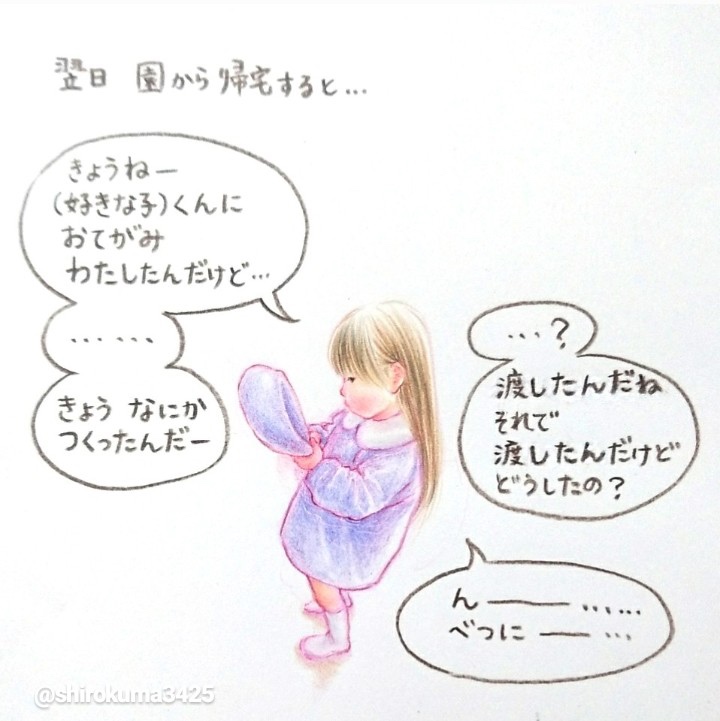 翌日 園から帰宅すると...
きょうねー
(好きな子)くんに
おてがみ
わたしたんだけど...
......
きょう なにか
つくったんだー
...?
渡したんだね
それで
渡したんだけど
どうしたの?
ん―― ......
べつに ―― ...
@shirokuma3425